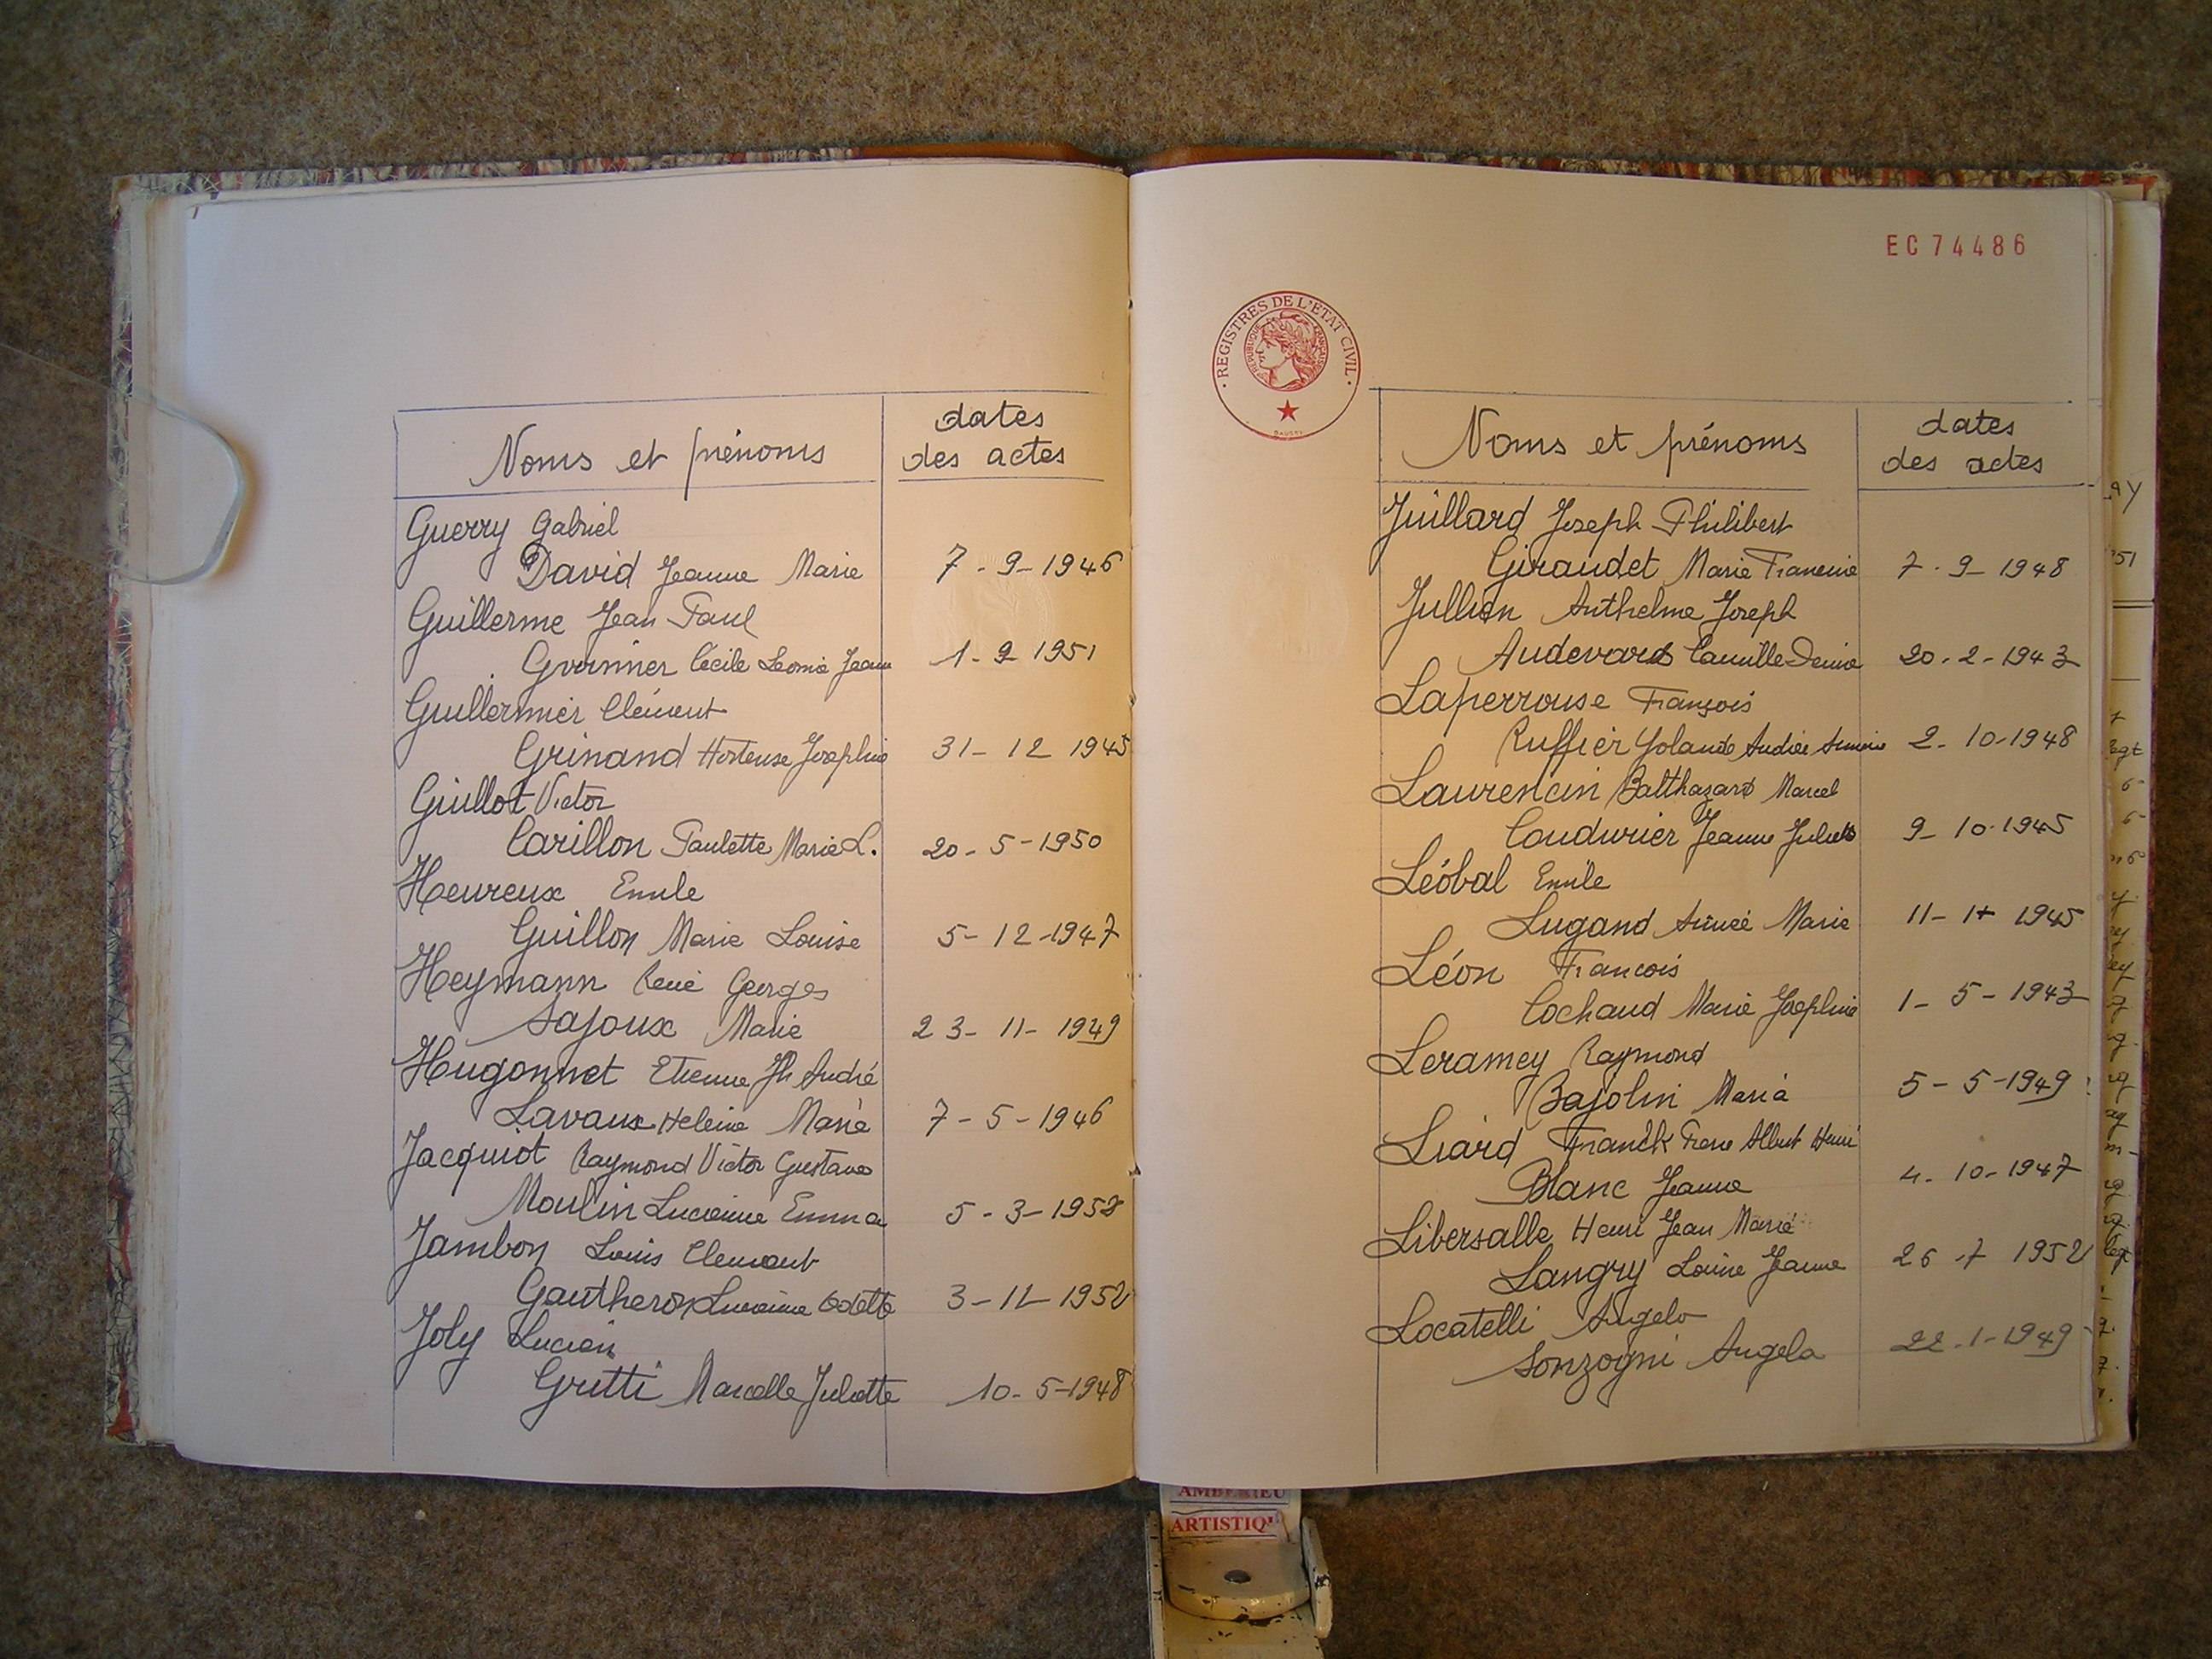 Noms et prénoms
dates
des actes
Guerry Gabriel
David Jeanne Marie 7-9-1946
Guillerme Jean Paul
Cécile Leonie Jeanne 1-9 1951
Guillermier Clément
Grinand Hortense Josephine 31-12 1945
Guillot Victor
Carillon Paulette Marie L. 20-5-1950
Heureux Emile
Guillon Marie Louise 5-12-1947
Heymann René Georges
Sajoux Marie 23-11-1949
Hugonnet Etienne Jh André
Lavaux Helene Marie 7-5-1946
Jacquiot Raymond Victor Gustave
Moulin Lucienne Emma 5-3-1952
Jambon Louis Clement
Gautheron Lucienne Odette 3-11-1952
Joly Lucien
Gritti Marcelle Juliette 10-5-1948
EC 74486
REGISTRES DE L'ÉTAT CIVIL
RÉPUBLIQUE FRANÇAISE
Noms et prénoms
dates
des actes
Juillard Joseph Philibert
Giraudet Marie Francine 7-9-1948
Jullien Anthelme Joseph
Audevard Camille Denise 20-2-1943
Laperrouse François
Ruffier Yolande Andrée 2-10-1948
Laurencin Balthazard Marcel
Coudurier Jeanne Juliette 9-10-1945
Léobal Emile
Lugand Aimée Marie 1945
Léon Francois
Cochaud Marie Josephine 1-5-1943
Leramey Raymond
Bajolin Maria 5-5-1949
Liard Franck Albert Henri
Blanc Jeanne 4-10-1947
Libersalle Henri Jean Marie
Langry Louise Jeanne 26-7 1952
Locatelli Angelo
Sonzogni Angela 22-1-1949
AMBERIEU
ARTISTIQU